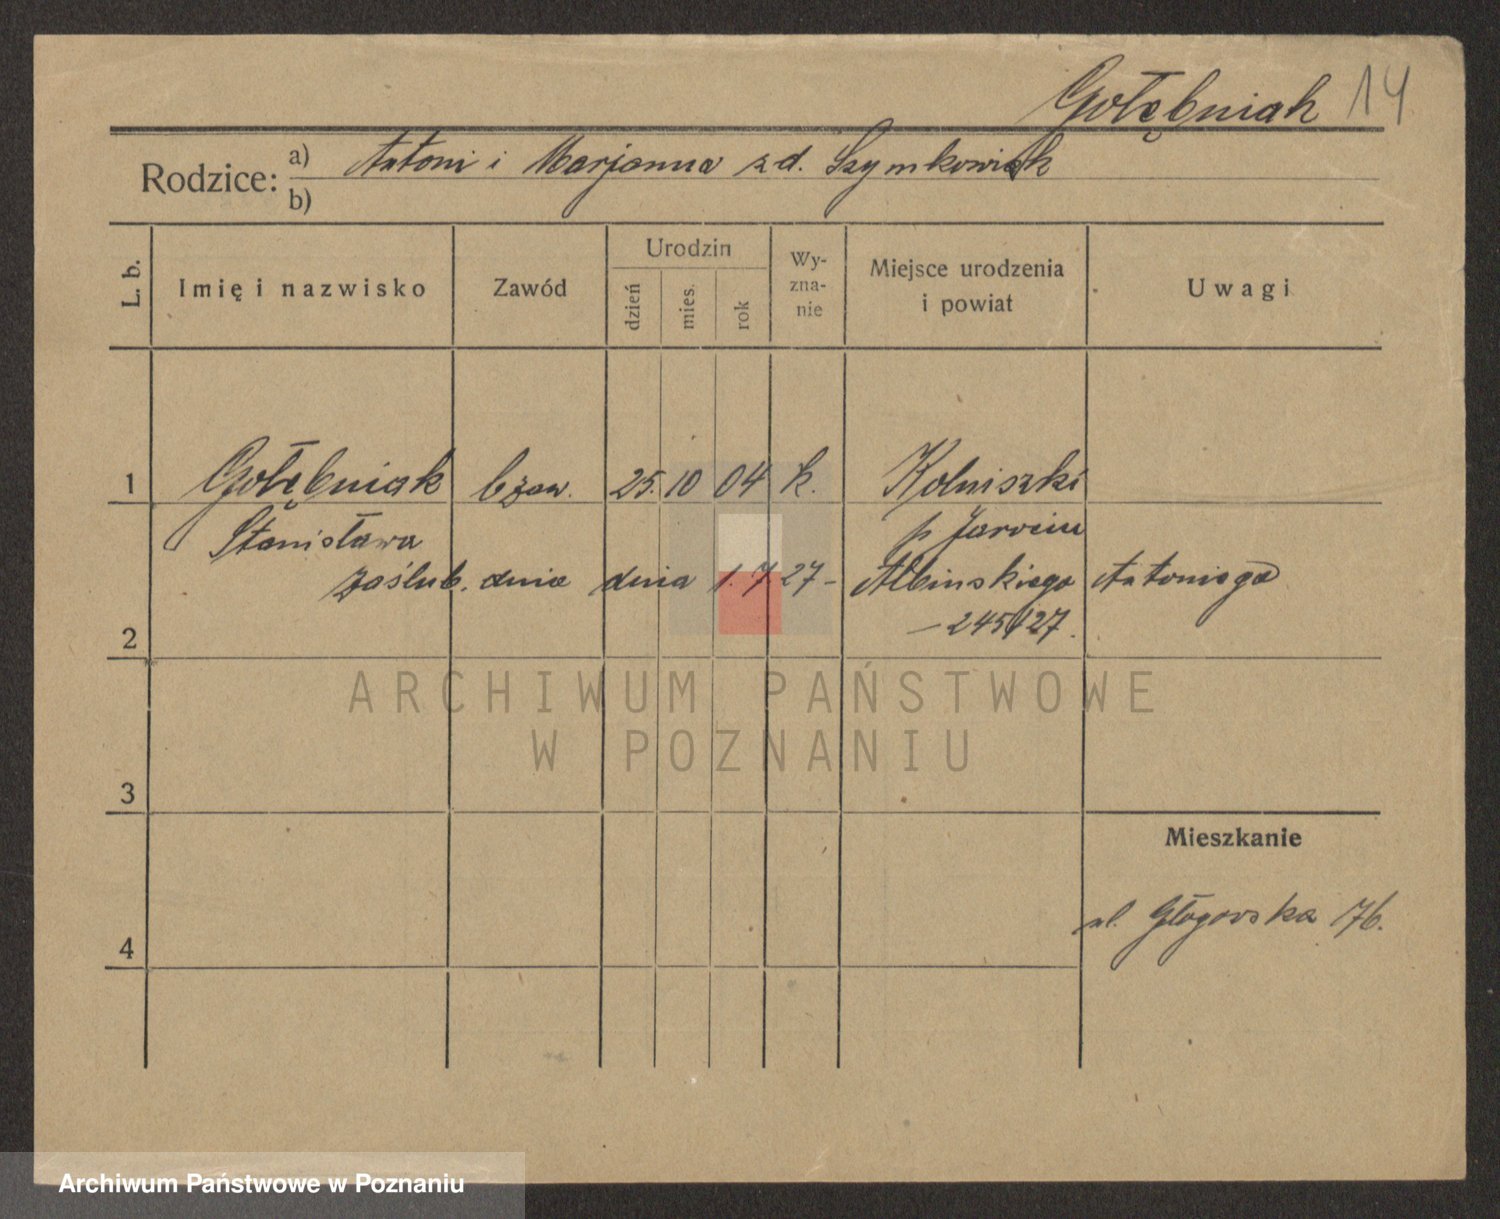 Gołębniak 14
Rodzice: a) Antoni i Marjanna z d. Szymkowiak
b)
L. b. Imię i nazwisko Zawód Urodzin dzień mies. rok Wyznanie Miejsce urodzenia i powiat Uwagi
1 Gołębniak bzaw. 25. 10 04 k. Kolniszki
Stanisława p Jarocin
zaślub. dnia dnia 1. 7 27- Albinskiego Antoniego
2 -245/27.
ARCHIWUM PAŃSTWOWE
W POZNANIU
3
Mieszkanie
ul. Głogowska 76.
4
Archiwum Państwowe w Poznaniu